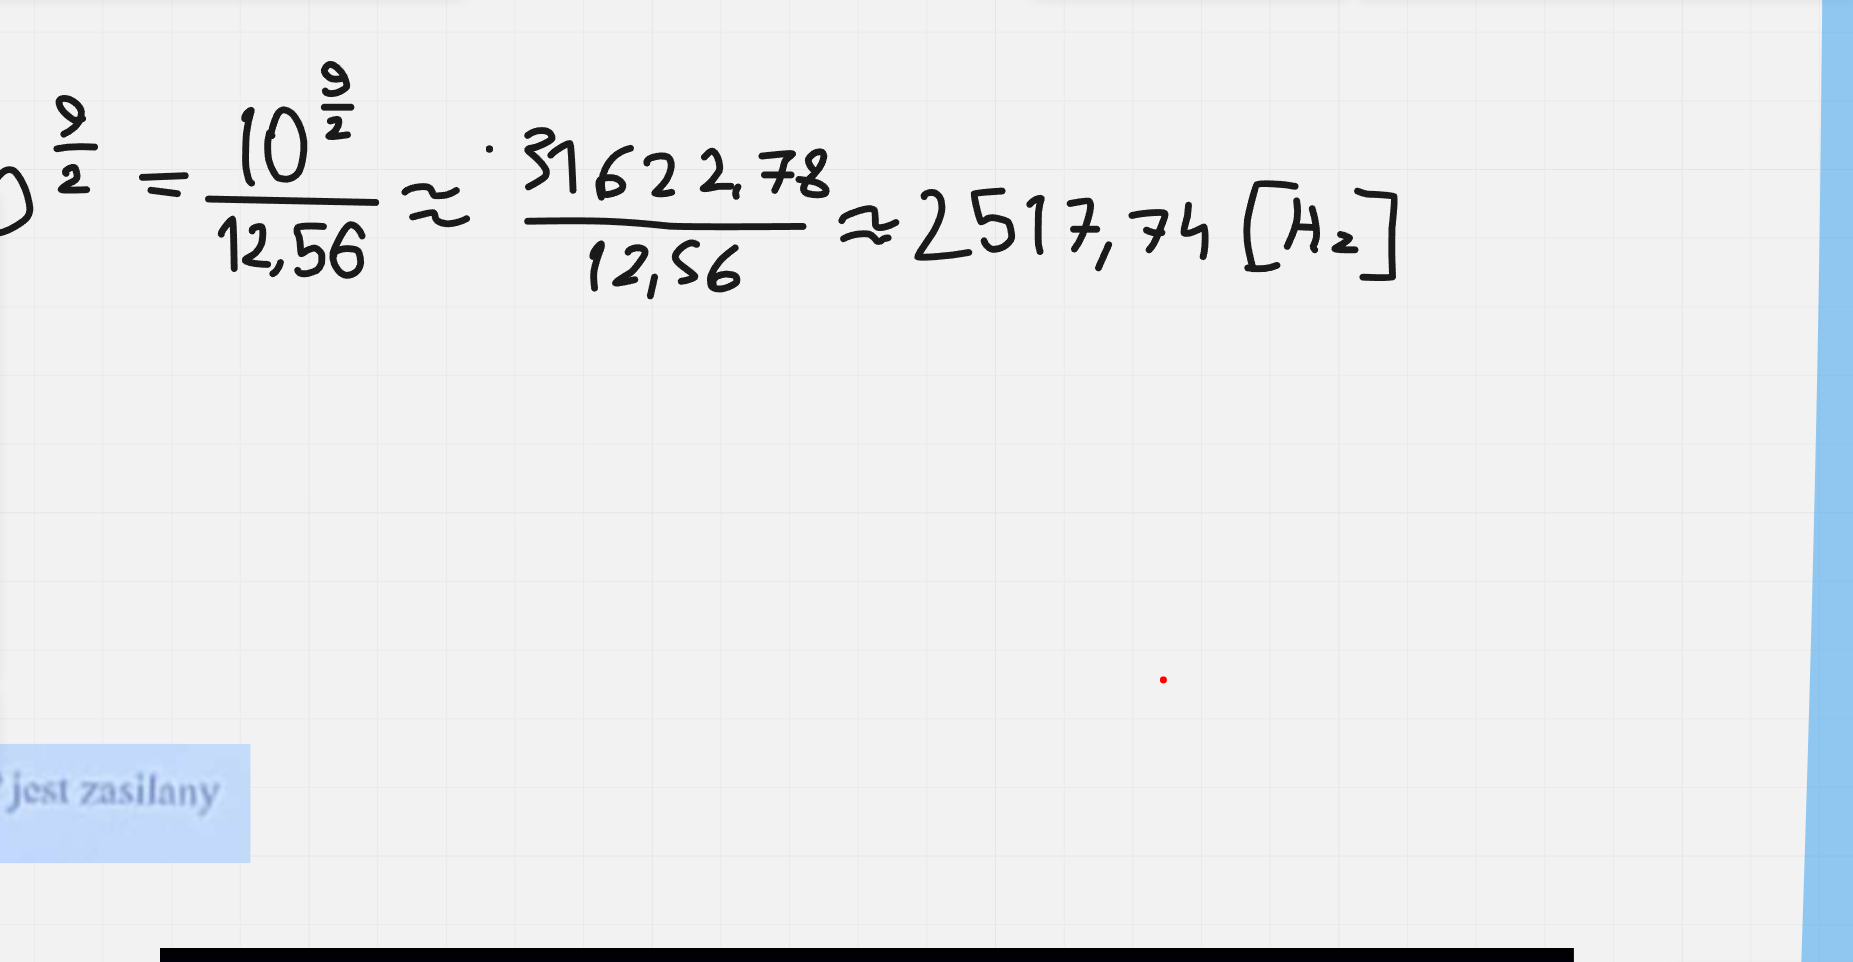 0^{9/2} = \frac{10^{9/2}}{12,56} ≈ \frac{31622,78}{12,56} ≈ 2517,74 [Hz]
jest zasilany